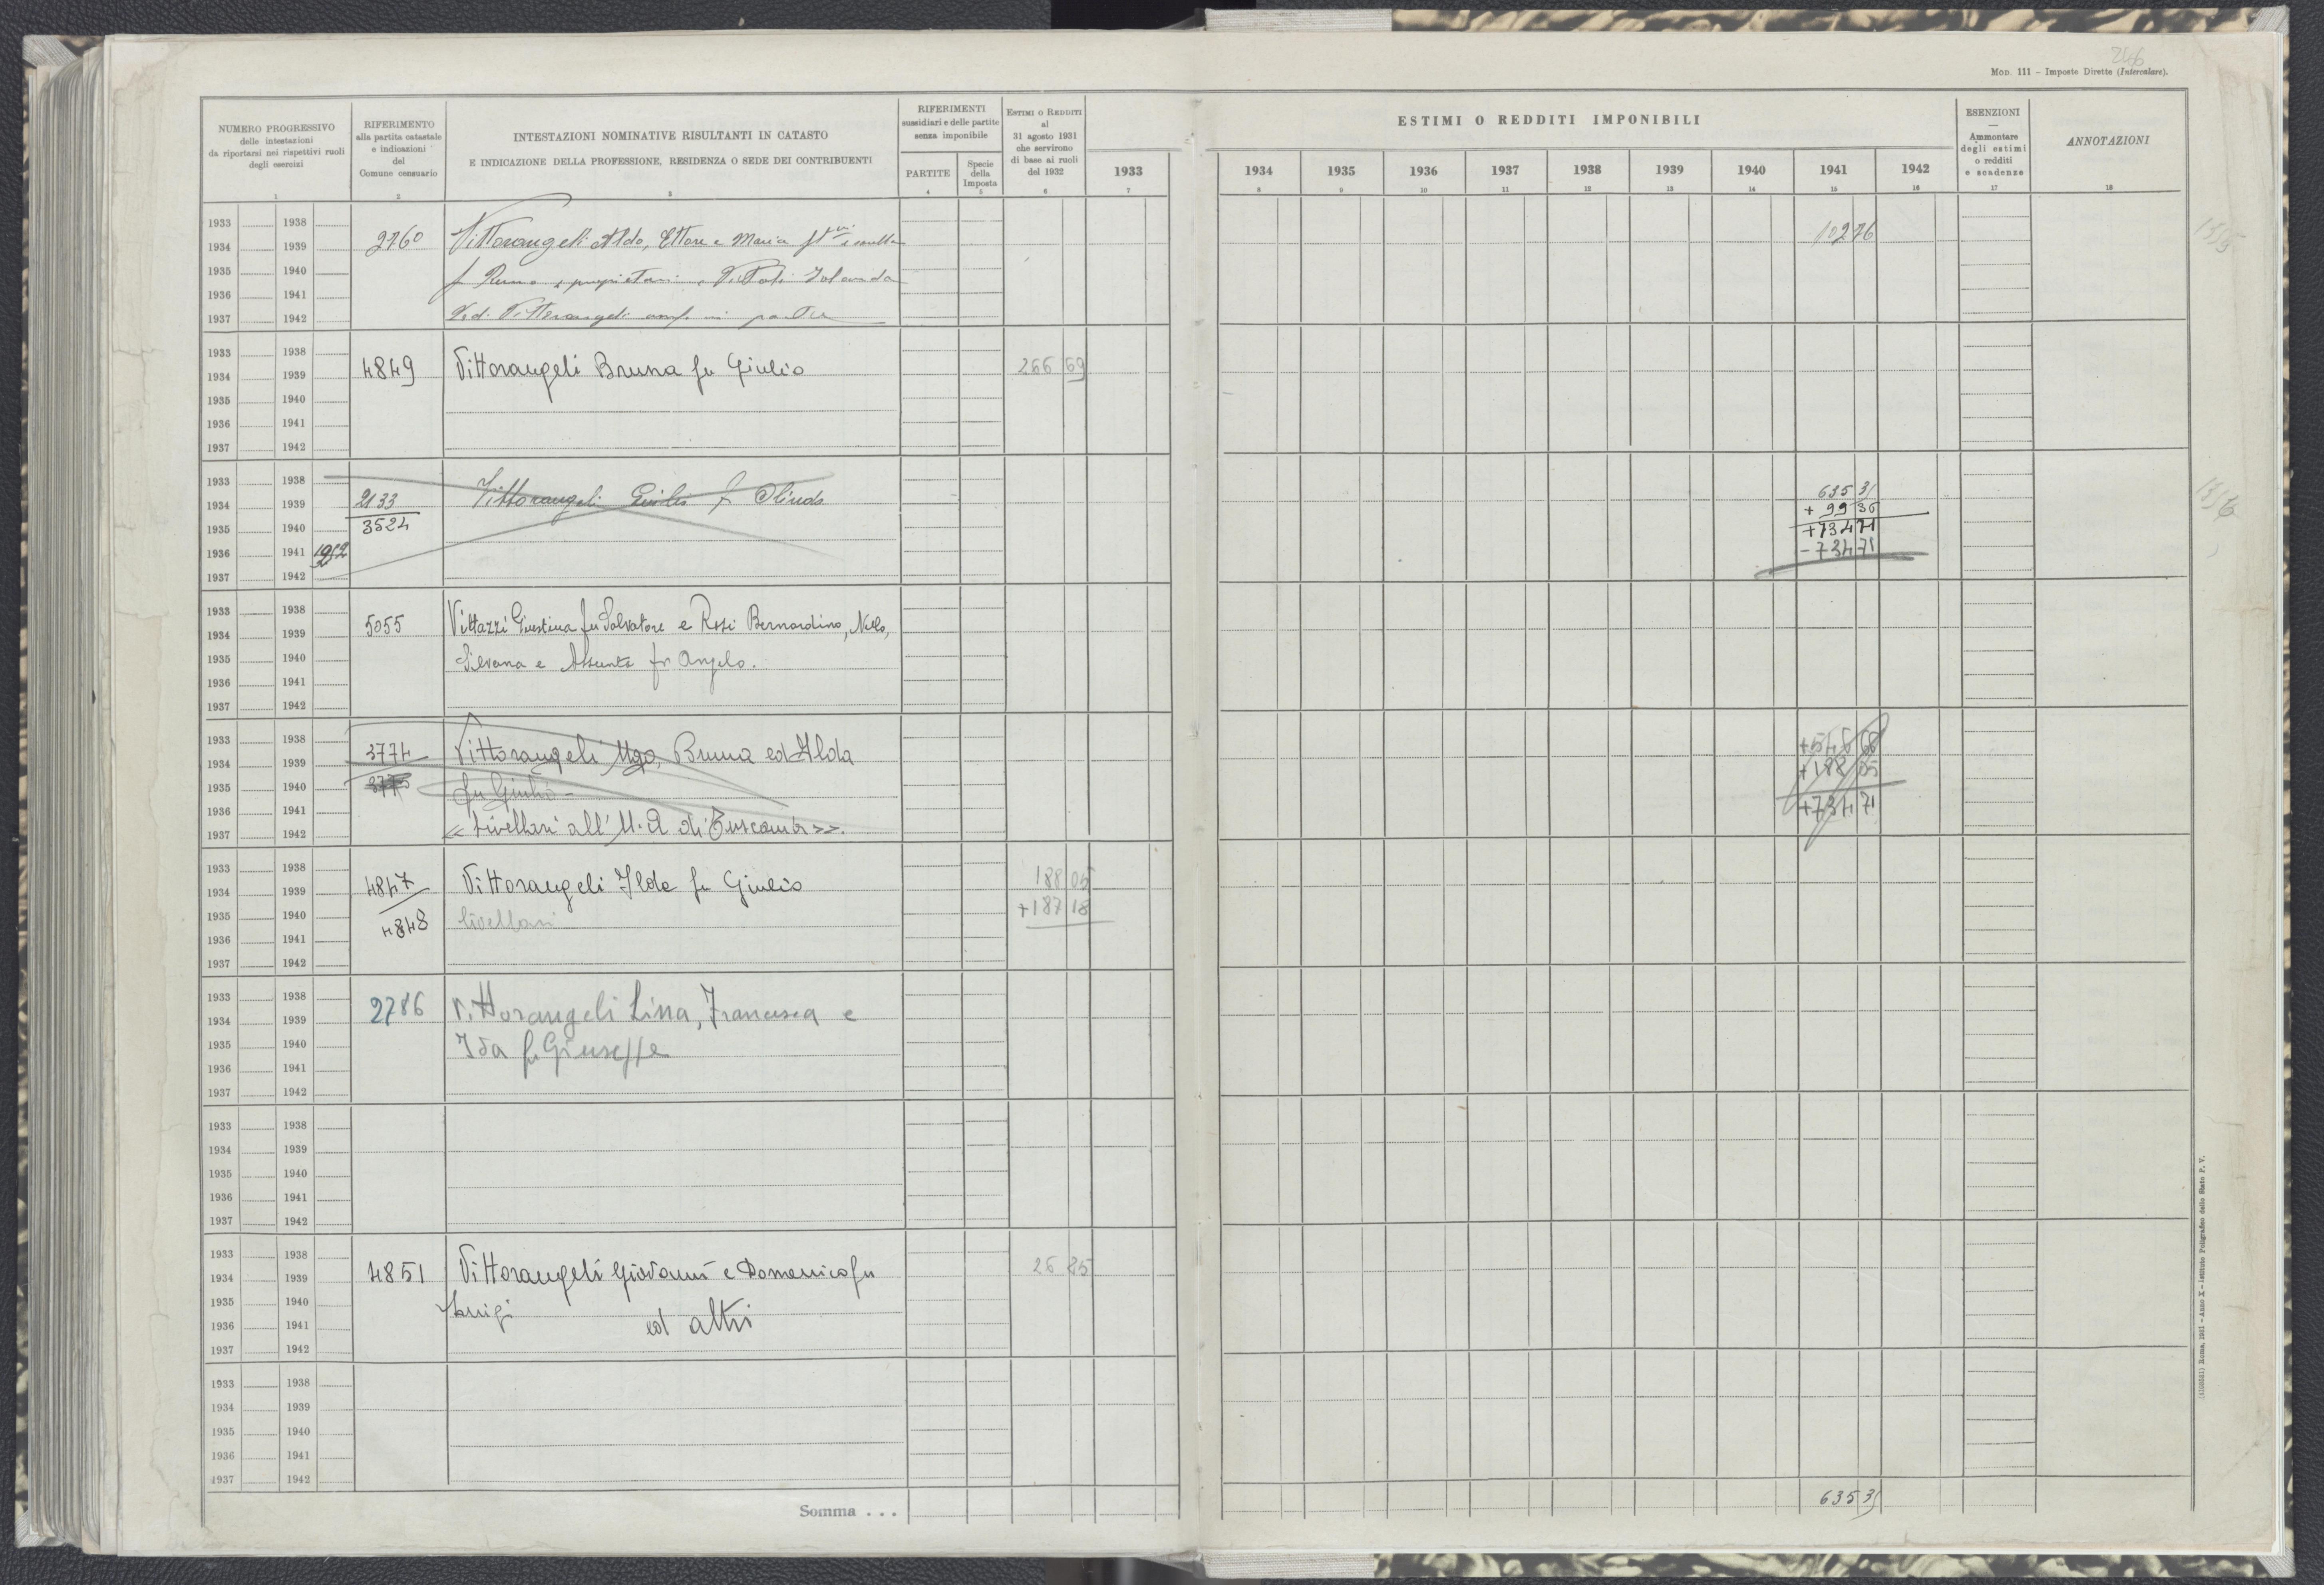 246
MOD. 111 - Imposte Dirette (Intercalare).
NUMERO PROGRESSIVO
delle intestazioni
da riportarsi nei rispettivi ruoli
degli esercizi
1
RIFERIMENTO
alla partita catastale
e indicazioni
del
Comune censuario
2
INTESTAZIONI NOMINATIVE RISULTANTI IN CATASTO
E INDICAZIONE DELLA PROFESSIONE, RESIDENZA O SEDE DEI CONTRIBUENTI
3
RIFERIMENTI
sussidiari e delle partite
senza imponibile
PARTITE
4
Specie
della
Imposta
5
ESTIMI O REDDITI
al
31 agosto 1931
che servirono
di base ai ruoli
del 1932
6
1933
7
ESTIMI O REDDITI IMPONIBILI
1934 1935 1936 1937 1938 1939 1940 1941 1942
8 9 10 11 12 13 14 15 16
ESENZIONI
—
Ammontare
degli estimi
o redditi
e scadenze
17
ANNOTAZIONI
18
1933 1938
1934 1939 2760 Vittorangeli Aldo, Ettore e Maria 102 76
1935 1940 proprietari Iolanda
1936 1941
1937 1942 Vittorangeli
1933 1938
1934 1939 4849 Vittorangeli Bruna fu Giulio 266 69
1935 1940
1936 1941
1937 1942
1933 1938
1934 1939 2133 Vittorangeli Giulio f Olindo 635 31
1935 1940 3524 + 99 36
1936 1941 1942 +734 71
1937 1942 -734 71
1933 1938
1934 1939 5055 Vittazzi Giustina fu Salvatore e Rosi Bernardino, Nello,
1935 1940 Silvana e Assunta fu Angelo.
1936 1941
1937 1942
1933 1938
1934 1939 3774 Vittorangeli Ugo, Bruna ed Ilda +546 66
1935 1940 3775 fu Giulio - +188 05
1936 1941 +734 71
1937 1942 « Livellari all' U. A. di Tuscania ».
1933 1938
1934 1939 4847 Vittorangeli Ilda fu Giulio 188 05
1935 1940 4848 livellari +187 18
1936 1941
1937 1942
1933 1938
1934 1939 2786 Vittorangeli Lina, Francesca e
1935 1940 Ida fu Giuseppe
1936 1941
1937 1942
1933 1938
1934 1939
1935 1940
1936 1941
1937 1942
1933 1938
1934 1939 4851 Vittorangeli Giovanni e Domenico fu 26 25
1935 1940 Luigi
1936 1941 ed altri
1937 1942
1933 1938
1934 1939
1935 1940
1936 1941
1937 1942
Somma . . . 635 31
(4103551) Roma, 1931 - Anno X - Istituto Poligrafico dello Stato P. V.